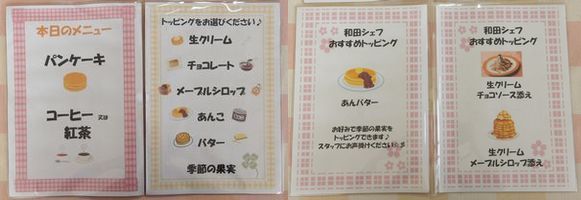 本日のメニュー
パンケーキ
コーヒー 又は
紅茶
トッピングをお選びください♪
生クリーム
チョコレート
メープルシロップ
あんこ
バター
季節の果実
和田シェフ
おすすめトッピング
あんバター
お好みで季節の果実を
トッピングできます♪
スタッフにお声掛けください
和田シェフ
おすすめトッピング
生クリーム
チョコソース添え
生クリーム
メープルシロップ添え